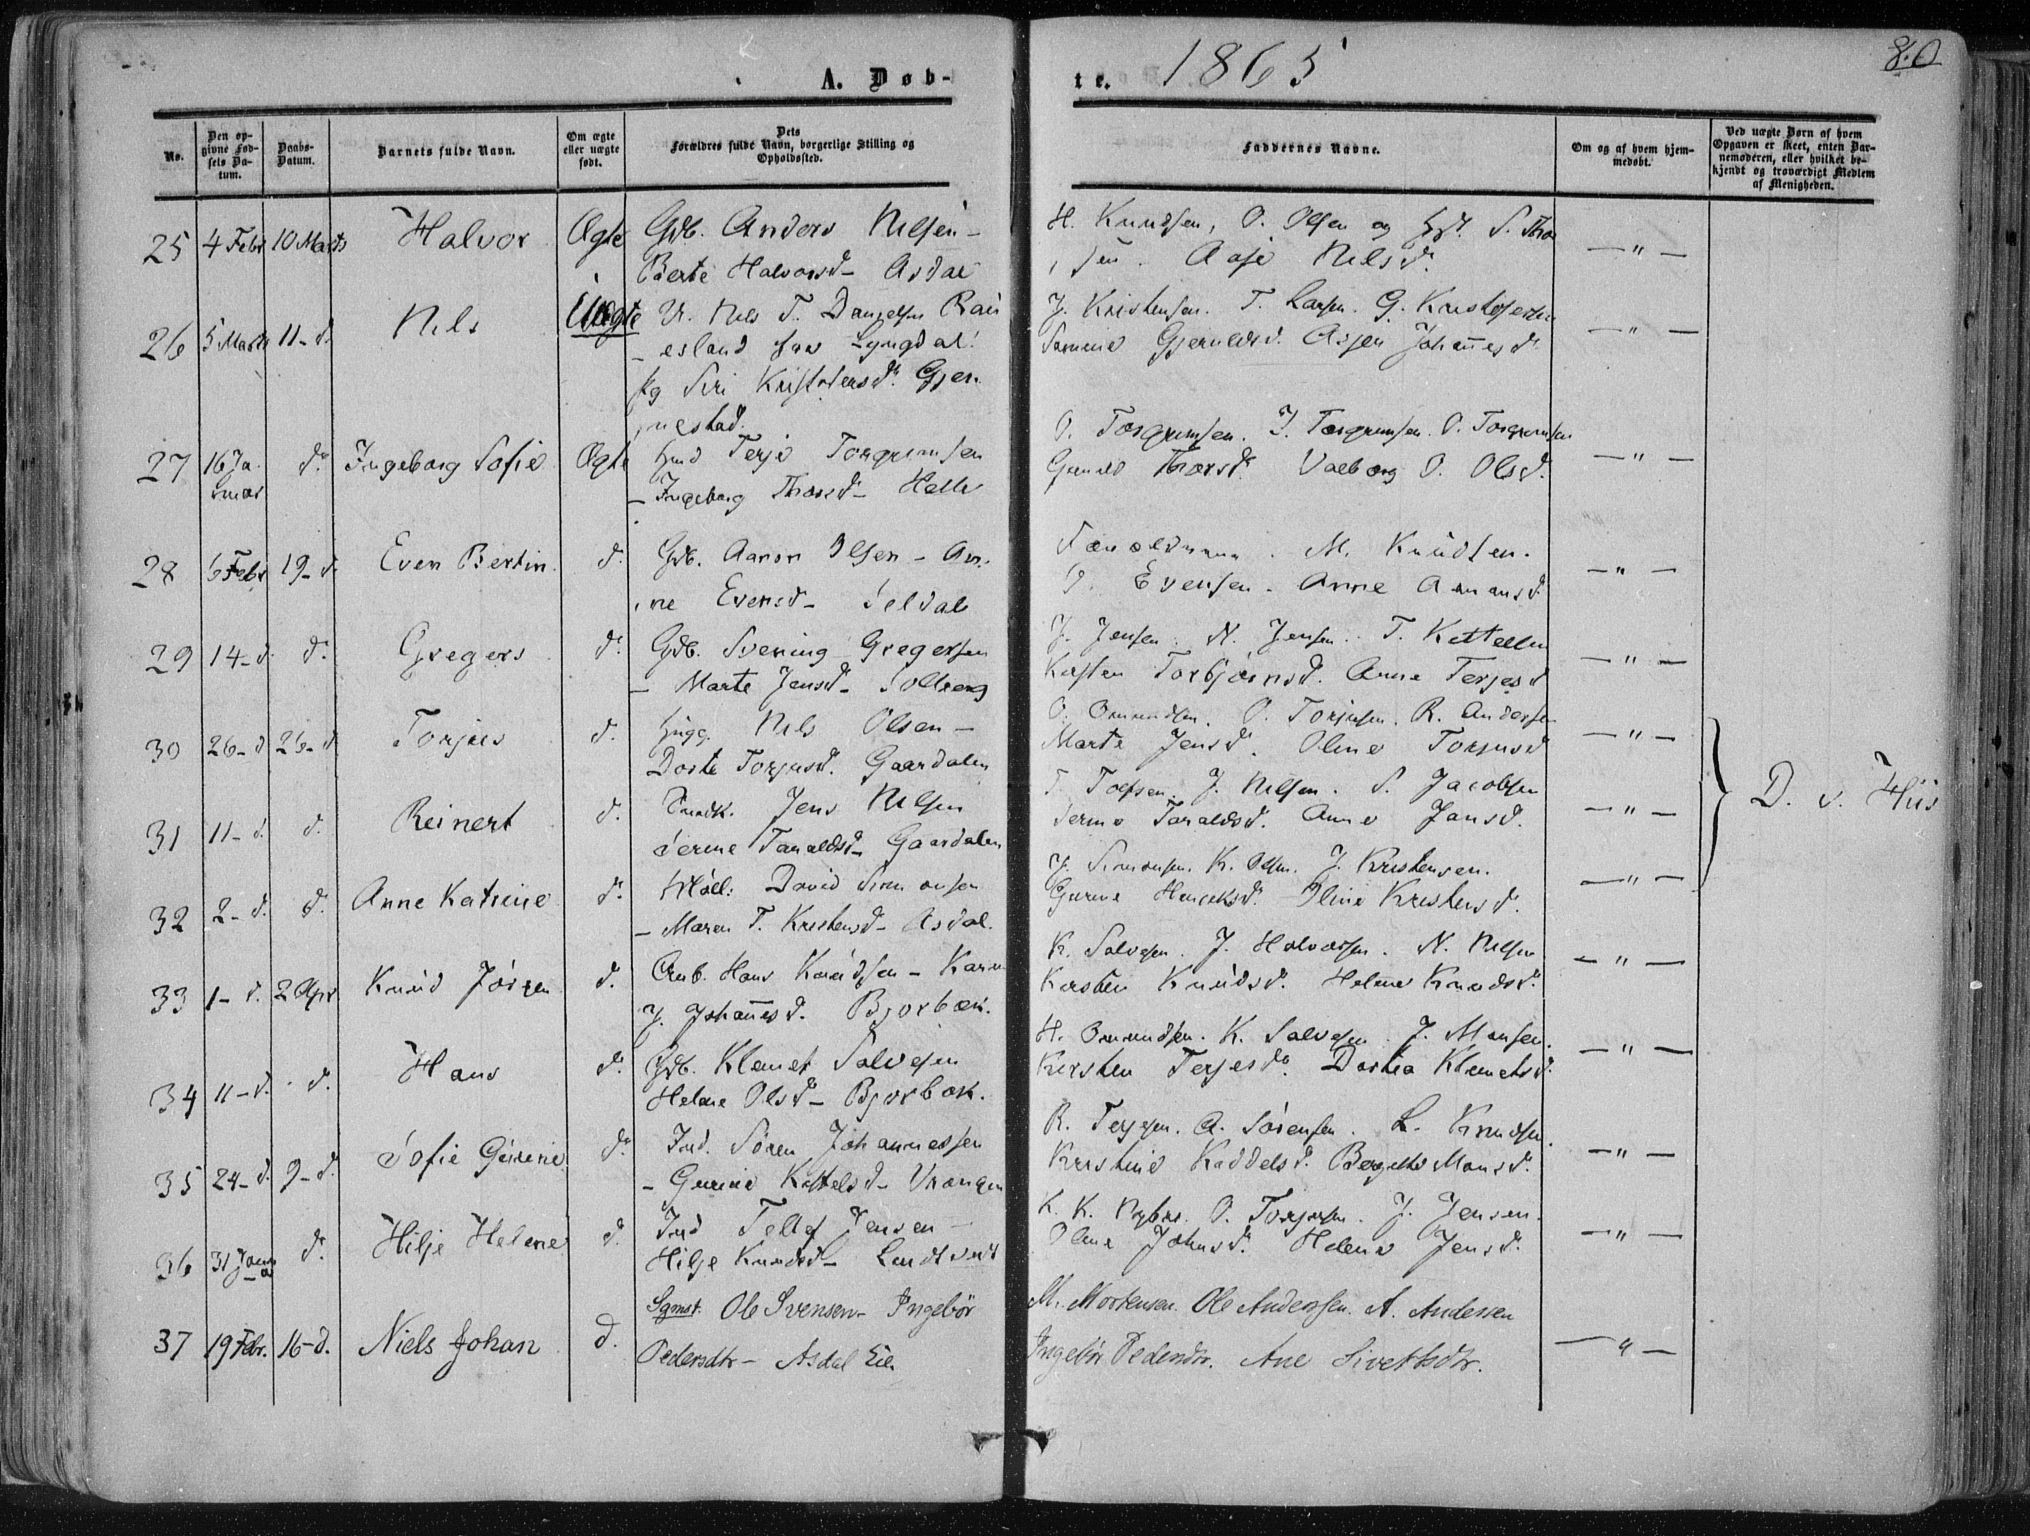 A. Døb-
te. 1865
80
No.
Den op-
givne Fød-
sels Da-
tum.
Daabs-
Datum.
Barnets fulde Navn.
Om ægte
eller uægte
født.
Dets
Forældres fulde Navn, borgerlige Stilling og
Opholdssted.
Faddernes Navne.
Om og af hvem hjem-
medøbt.
Ved uægte Børn af hvem
Opgaven er skeet, enten Bar-
nemoderen, eller hvilket be-
kjendt og troværdigt Medlem
af Menigheden.
25 4 Febr 10 Marts Halvor Ægte Gdb. Anders Nilsen -
Berte Halvorsd - Asdal
H. Knudsen, O. Olsen og S. Thor
sen. Aase Nilsd. — " —
26 5 Marts 11 - d. Nils Uægte U. Nils T. Danielsen Rau
esland fra Lyngdal
Pg Siri Kristofersd. Gjen
nestad.
J. Kristensen. T. Larsen. G. Kristofersen
Gjeruldsd. Asjer Johannesd. — " —
27 16 Ja
nuar d. Ingeborg Sofie Ægte Hmd Terje Torgrimsen
- Ingeborg Thorsd - Helle
O. Torgrimsen. J. Torgrimsen. O. Torgrimsen
Gunild Thorsd. Valborg O. Olsd. — " —
28 6 Febr 19 - d. Even Bertin d. Gdb. Aaron Olsen - An-
ne Evensd - Seldal
M. Knudsen.
Evensen. Anne Amansd — " —
29 14 - d. d. Gregers d. Gdb. Svening Gregersen
- Marte Jensd - Solberg
J. Jensen. N. Jensen. T. Kittelsen
Kirsten Torbjørnsd. Anne Terjesd — " —
30 26 - d 26 - d Torjus d. Nils Olsen -
Dorte Torjusd. Gaardalen
O. Omundsen. O. Torjusen. R. Andersen
Marte Jensd. Oline Torjusd — " —
31 11 - d. d. Reinert d. Jens Nilsen
Serine Taraldsd - Gaardalen
T. Tolfsen. J. Nilsen. S. Jacobsen
Serine Taraldsd. Anne Jansd. — " —
D. v. Hiis
32 2 - d. d. Anne Katrine d. Møll: David Simonsen
- Maren T. Kristensd - Asdal.
J. Simonsen. K. Olsen. J. Kristensen.
Gurine Henriksd. Oline Kristensd. — " —
33 1 - d. 2 Apr Knud Jørgen d. Arb. Hans Knudsen - Karen
J. Johannesd. Bjorbæk.
K. Salvesen. J. Halvorsen. N. Nilsen
Kirsten Knudsd. Helene Knudsd. — " —
34 11 - d. d. Hans d. Gdb. Klemet Salvesen
Helene Olsd - Bjorbæk.
H. Omundsen. K. Salvesen. J. Monsen.
Kirsten Terjesd. Dorthea Klemetsd. — " —
35 24 - d. 9 - d. Sofie Gurine d. Ind. Søren Johannessen
- Gurine Kittelsd - Vrængen
R. Terjesen. A. Sørensen. L. Knudsen.
Kristine Kaddelsd. Bergitte Monsd. — " —
36 31 Janu
ar d. Hilje Helene d. Ind Tellef Jensen -
Hilje Knudsd - Lindtveit
K. K. Nybro. O. Torjusen. J. Jensen.
Oline Johnsd. Helene Jensd. — " —
37 19 Febr. 16 - d. Niels Johan d. Sømst. Ole Svensen - Ingebör
Pedersdtr - Asdal Eie.
M. Mortensen. Ole Andersen. A. Andersen
Ingebör Pedersdtr. Ane Sivertsdtr. — " —